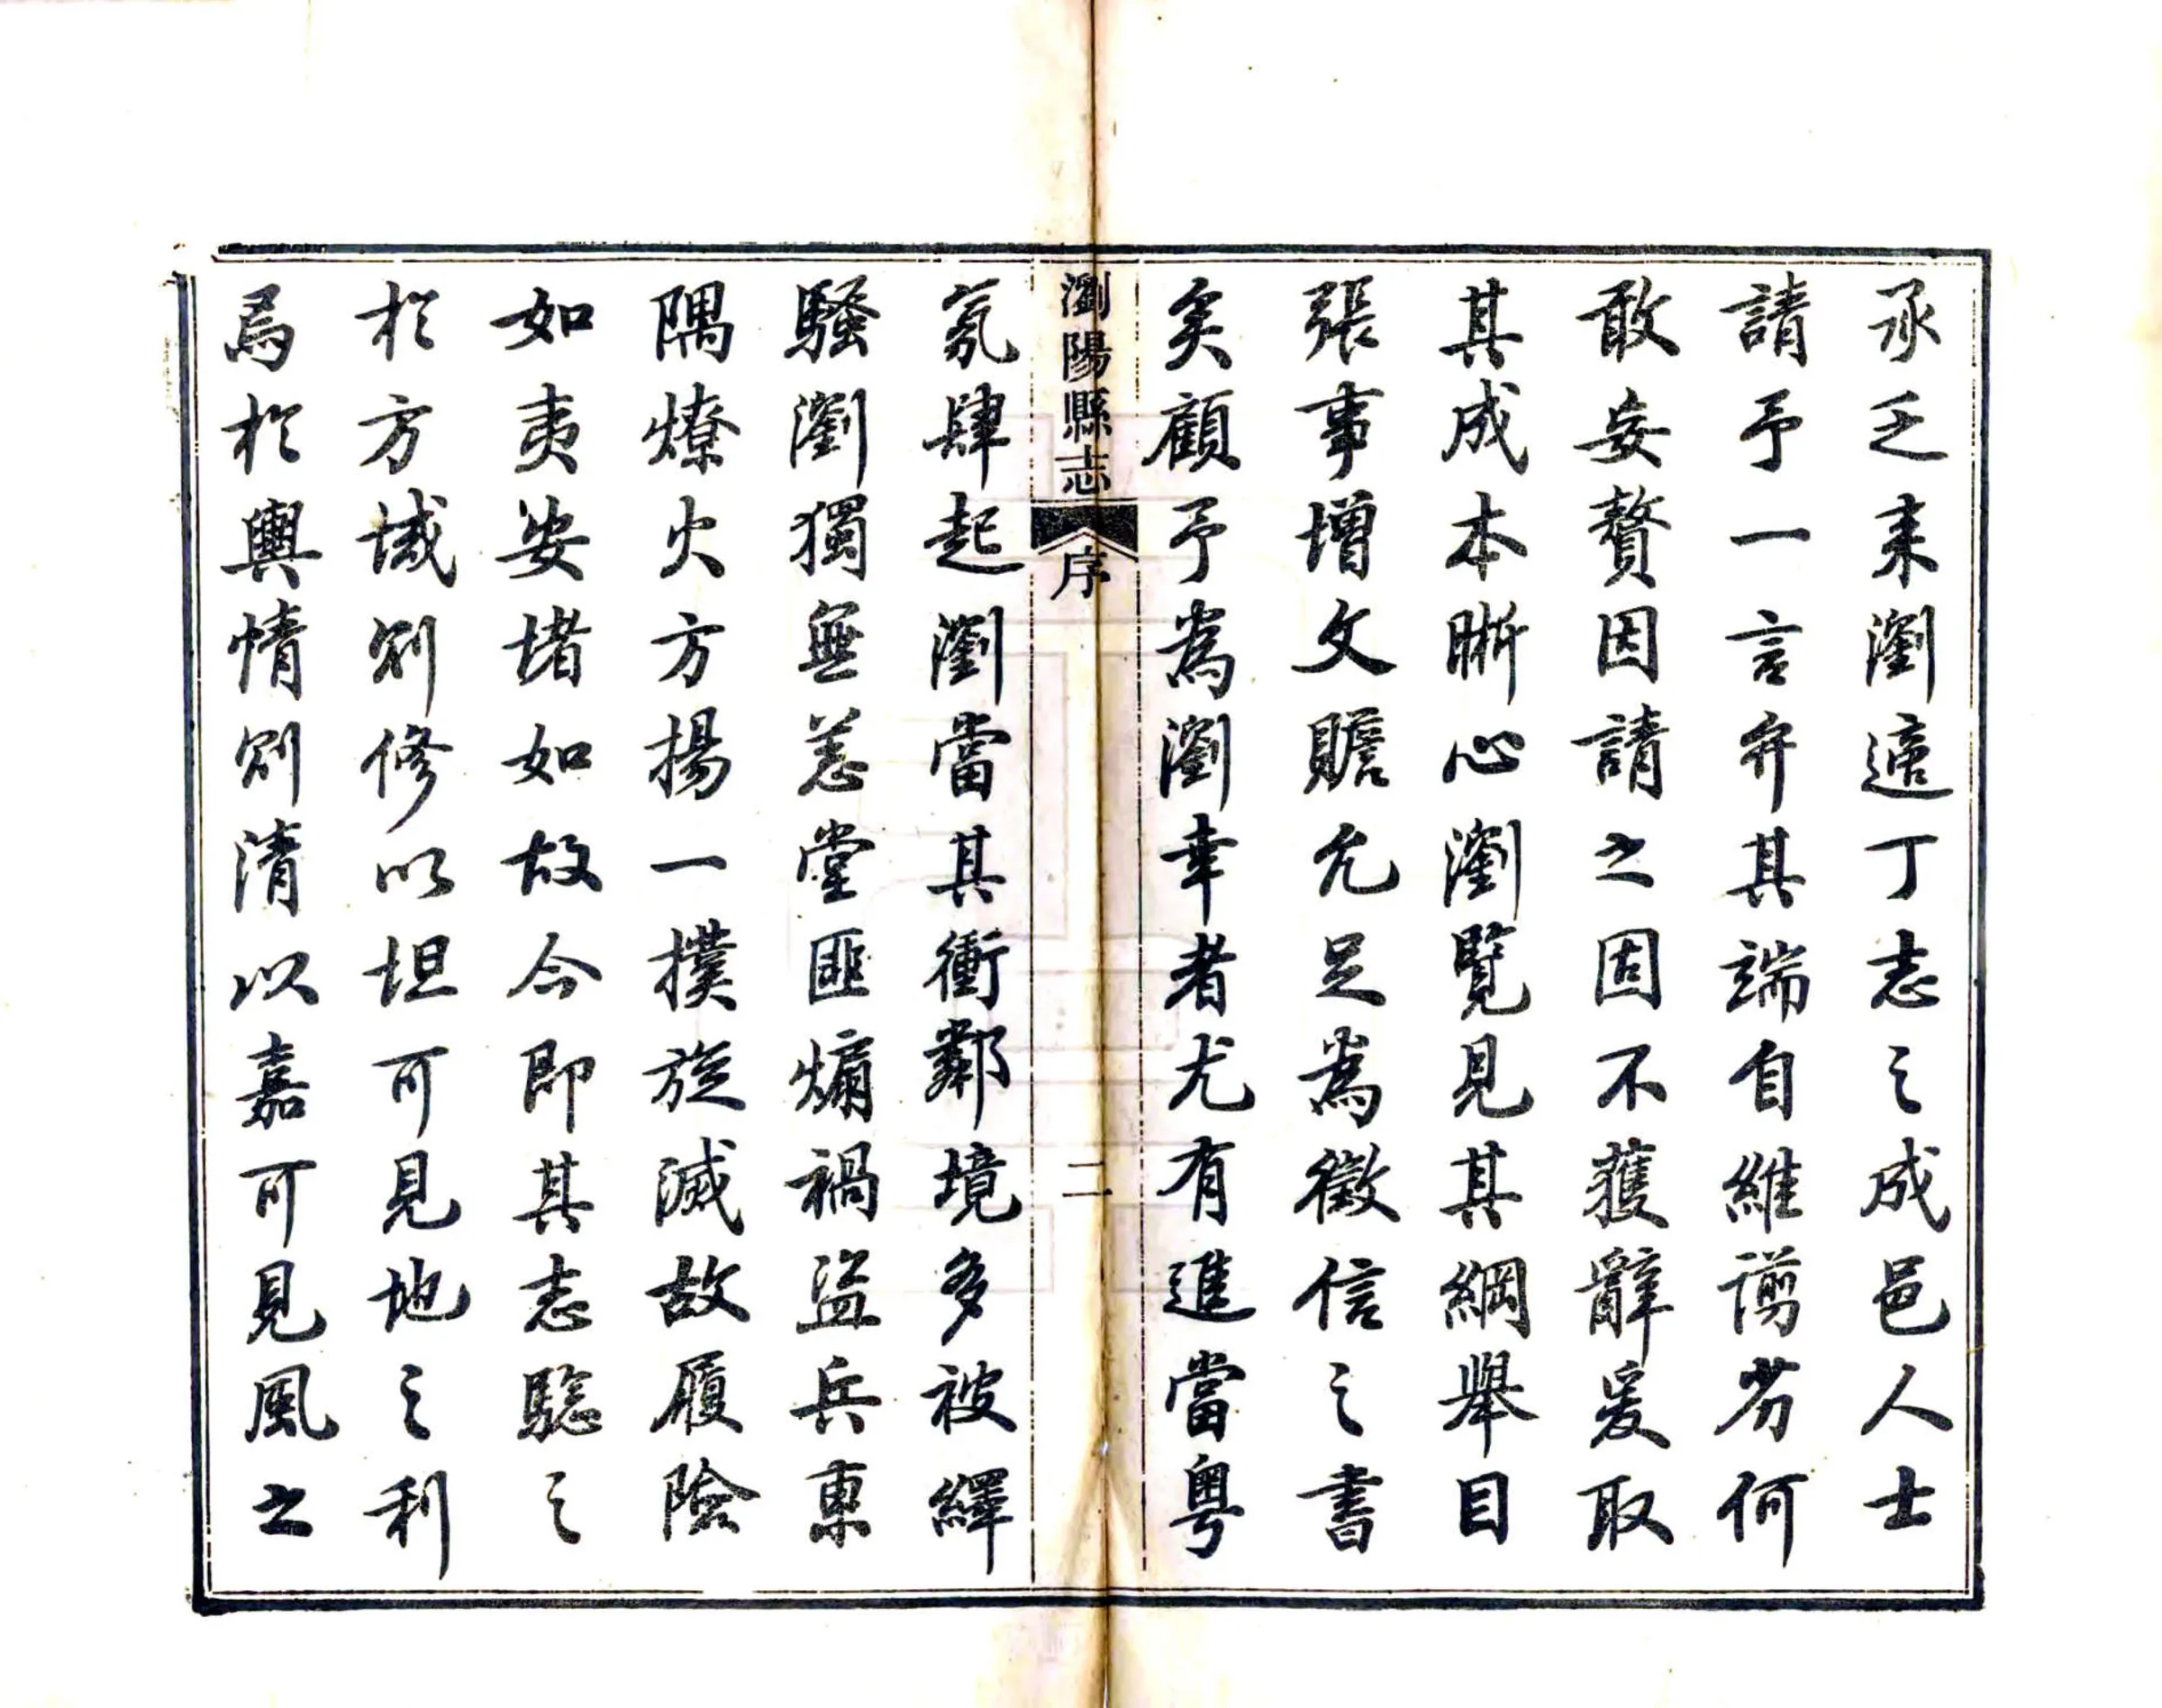 承乏來瀏適丁志之成邑人士
請予一言弁其端自維謭劣何
敢妄贅因請之固不獲辭爰取
其成本晰心瀏覽見其綱舉目
張事增文贍允足為徵信之書
矣顧予為瀏幸者尤有進當粵
瀏陽縣志
序
二
氛肆起瀏當其衝鄰境多被繹
騷瀏獨無恙堂匪煽禍盜兵東
隅燎火方揚一撲旋滅故履險
如夷安堵如故今即其志驗之
於方域則修以坦可見地之利
焉於輿情則清以嘉可見風之